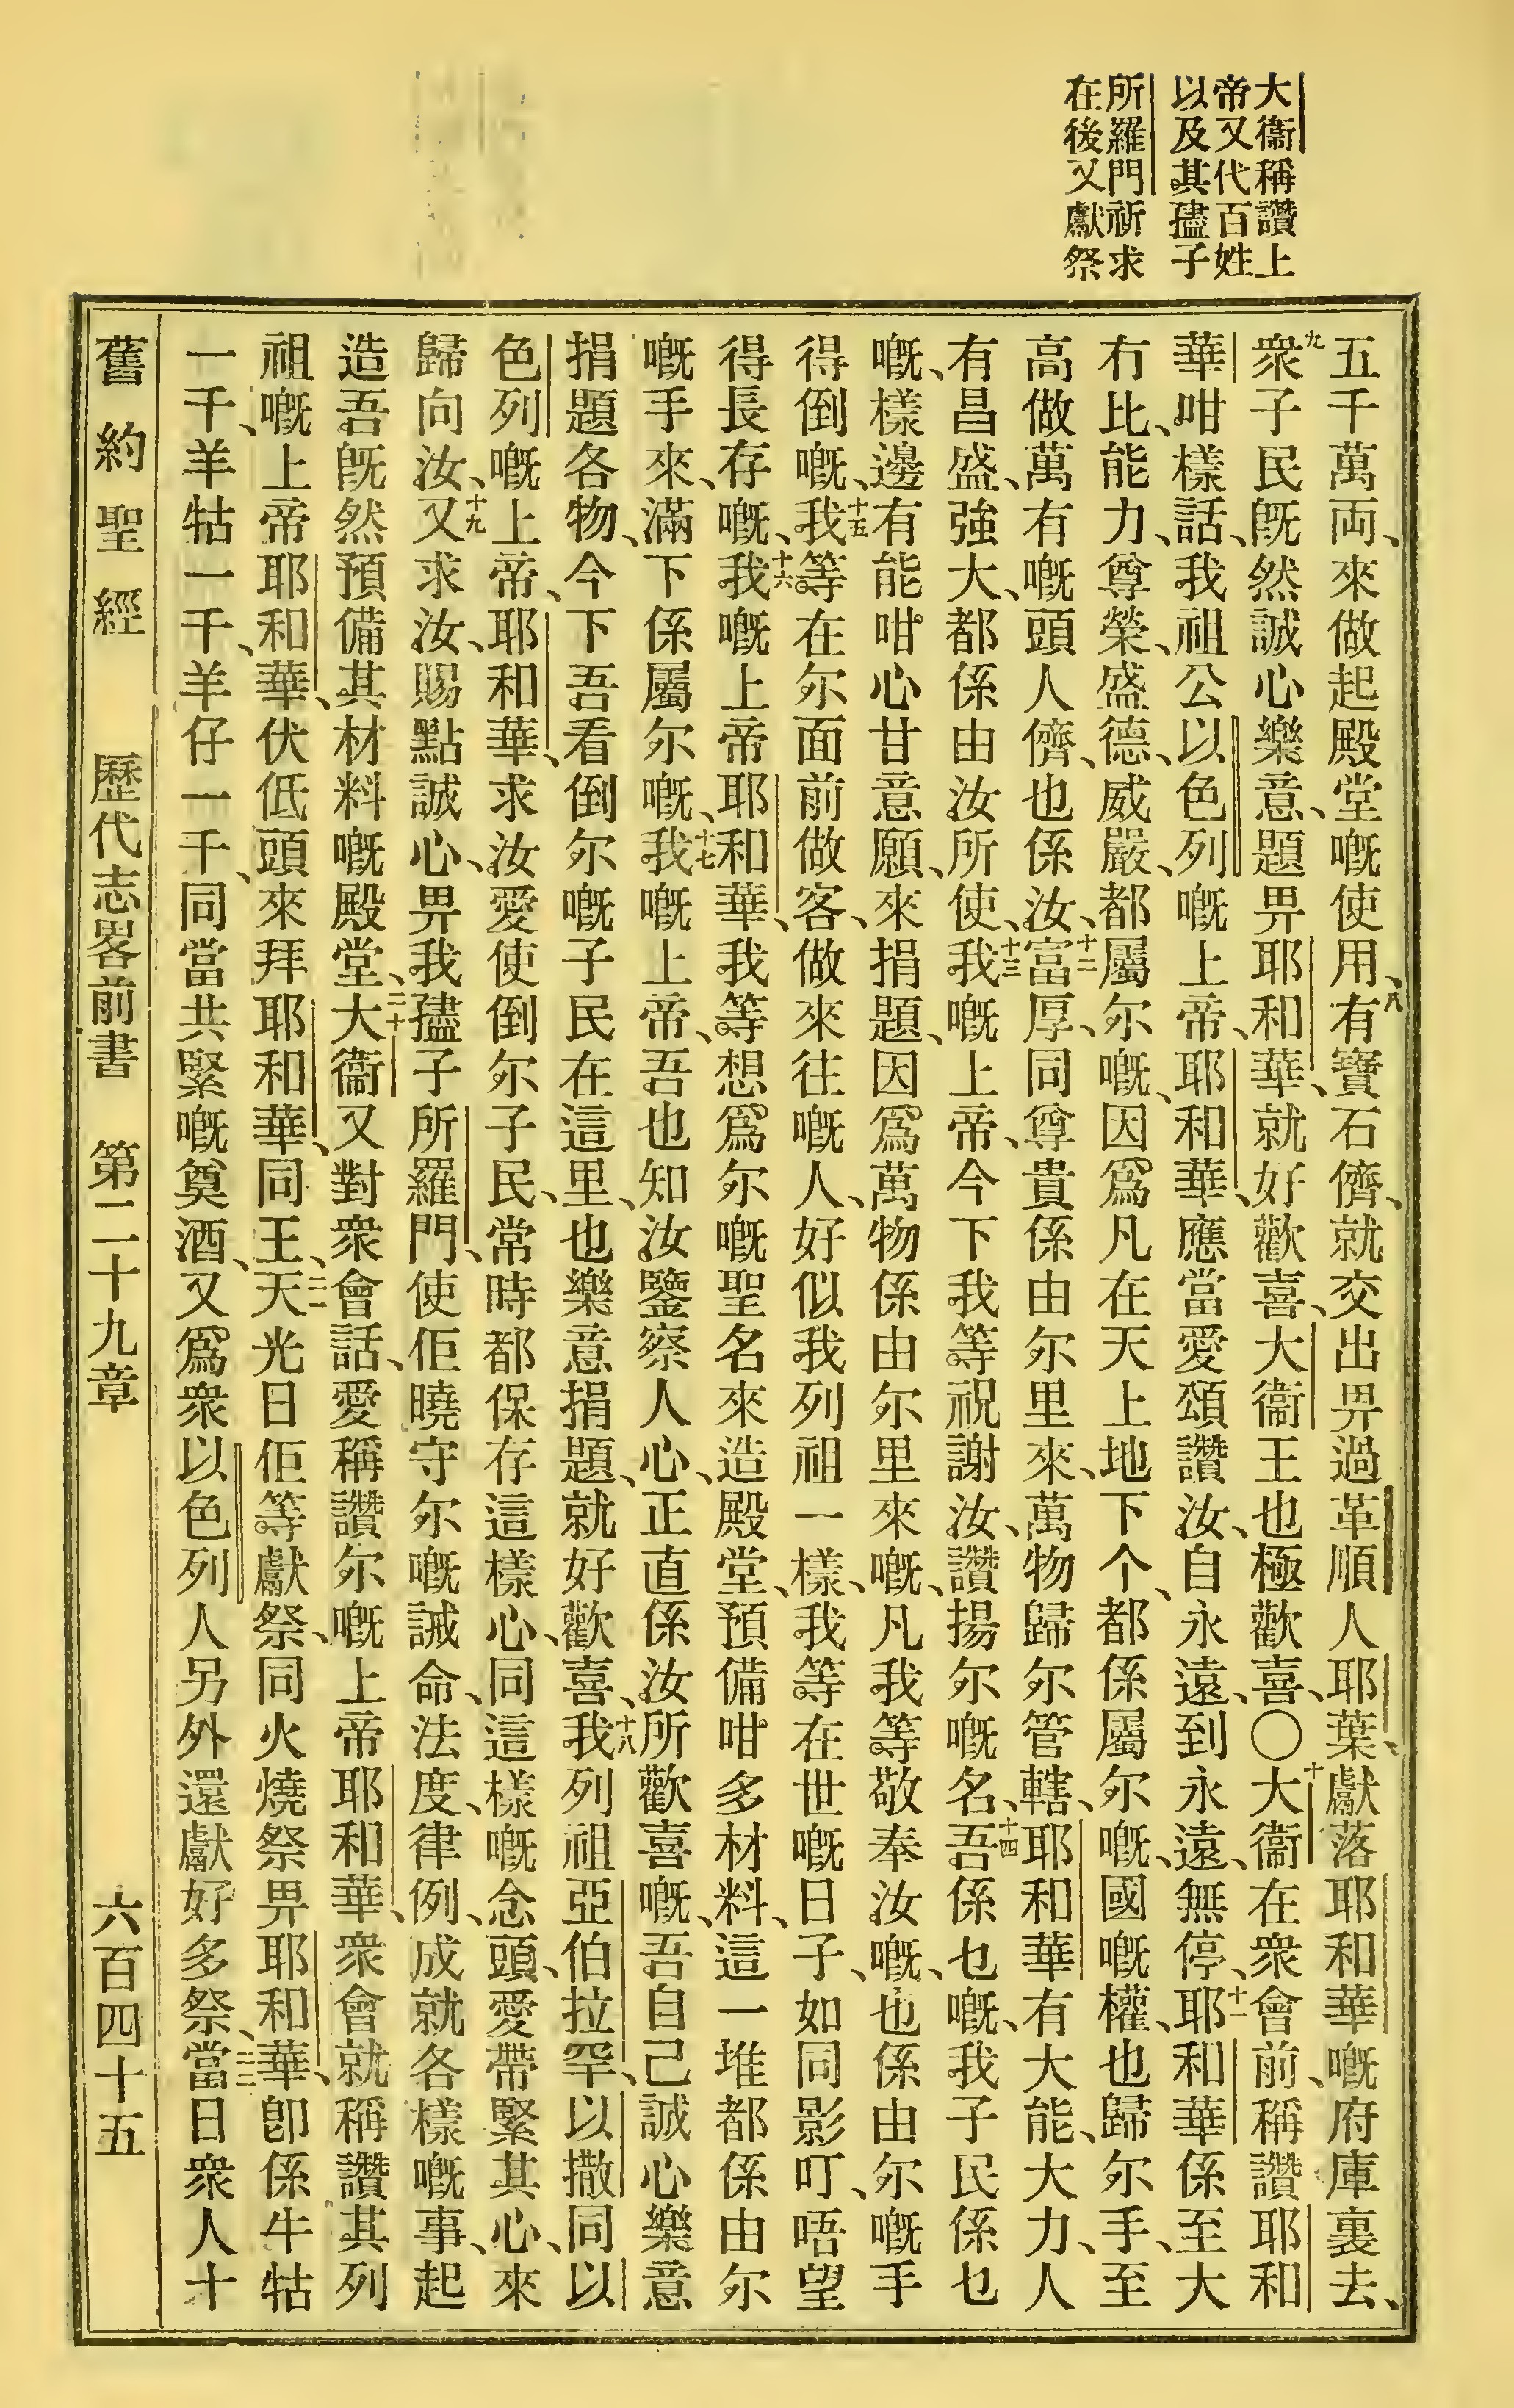 大衞稱讚上
帝又代百姓
以及其𡥧子
所羅門祈求
在後又獻祭
五千萬両、來做起殿堂嘅使用、八有寶石儕、就交出畀過革順人耶葉、獻落耶和華嘅府庫裏去、
九衆子民旣然誠心樂意、題畀耶和華、就好歡喜、大衞王也極歡喜、〇十大衞在衆會前、稱讚耶和
華咁樣話、我祖公以色列嘅上帝、耶和華、應當愛頌讚汝、自永遠、到永遠、無停、十一耶和華係至大
冇比、能力、尊榮、盛德、威嚴、都屬尔嘅、因爲凡在天上地下个、都係屬尔嘅、國嘅權、也歸尔手、至
高做萬有嘅頭人儕、也係汝、十二富厚、同尊貴係由尔里來、萬物歸尔管轄、耶和華有大能、大力、人
有昌盛、強大、都係由汝所使、十三我嘅上帝、今下我等祝謝汝、讚揚尔嘅名、十四吾係乜嘅、我子民係乜
嘅、樣邊有能咁心甘意願、來捐題、因爲萬物係由尔里來嘅、凡我等敬奉汝嘅、也係由尔嘅手
得倒嘅、十五我等在尔面前做客、做來往嘅人、好似我列祖一樣、我等在世嘅日子、如同影叮、唔望
得長存嘅、十六我嘅上帝耶和華、我等想爲尔嘅聖名來造殿堂、預備咁多材料、這一堆都係由尔
嘅手來、滿下係屬尔嘅、十七我嘅上帝、吾也知汝鑒察人心、正直係汝所歡喜嘅、吾自己誠心樂意
捐題各物、今下吾看倒尔嘅子民在這里、也樂意捐題、就好歡喜、十八我列祖亞伯拉罕、以撒同以
色列嘅上帝、耶和華、求汝愛使倒尔子民、常時都保存這樣心、同這樣嘅念頭、愛帶緊其心、來
歸向汝、十九又求汝、賜點誠心、畀我𡥧子所羅門、使佢曉守尔嘅誡命、法度、律例、成就各樣嘅事、起
造吾旣然預備其材料嘅殿堂、二十大衞又對衆會話、愛稱讚尔嘅上帝耶和華、衆會就稱讚其列
祖嘅上帝耶和華、伏低頭來拜耶和華、同王、二一天光日佢等獻祭、同火燒祭畀耶和華、卽係牛牯
一千、羊牯一千、羊仔一千、同當共緊嘅奠酒、又爲衆以色列人另外還獻好多祭、二二當日衆人十
舊約聖經 歷代志畧前書 第二十九章 六百四十五